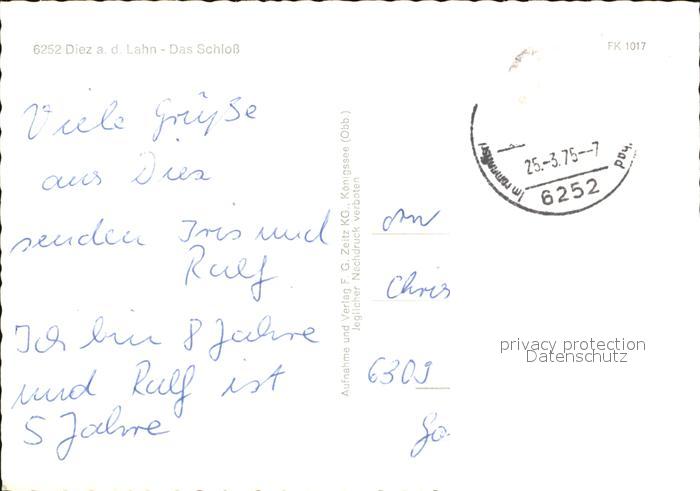 6252 Diez a. d. Lahn - Das Schloß
FK 1017
Viele Grüße
aus Diez
senden Iris und
Ralf
Ich bin 8 Jahre
und Ralf ist
5 Jahre
Aufnahme und Verlag F. G. Zeitz KG., Königssee (Obb.)
Jeglicher Nachdruck verboten
25.-3.75--7
6252
An
Chris
6309
privacy protection
Datenschutz